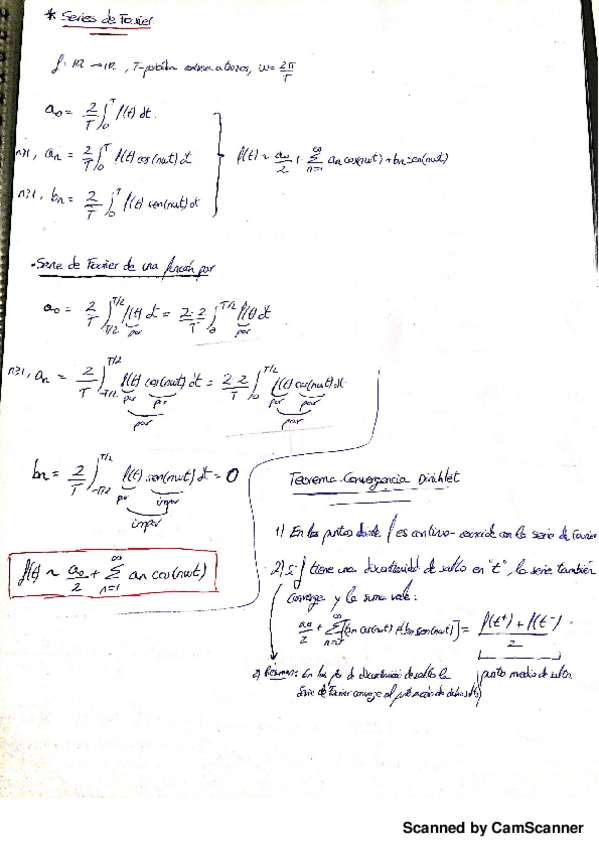 * Series de Fourier
f: IR → IR, T-periódica, ω = 2π/T
a₀ = 2/T ∫₀ᵀ f(t) dt.
n≥1, aₙ = 2/T ∫₀ᵀ f(t) cos(nωt) dt
f(t) ~ a₀/2 + ∑ₙ₌₁^∞ aₙ cos(nωt) + bₙ sen(nωt)
n≥1, bₙ = 2/T ∫₀ᵀ f(t) sen(nωt) dt
• Serie de Fourier de una función par
a₀ = 2/T ∫_{-T/2}^{T/2} f(t) dt = 2·2/T ∫₀^{T/2} f(t) dt
par par
n≥1, aₙ = 2/T ∫_{-T/2}^{T/2} f(t) cos(nωt) dt = 2·2/T ∫₀^{T/2} f(t) cos(nωt) dt
par par par par
par par
bₙ = 2/T ∫_{-T/2}^{T/2} f(t) sen(nωt) dt = 0
par impar
impar
f(t) ~ a₀/2 + ∑ₙ₌₁^∞ aₙ cos(nωt)
Teorema Convergencia Dirichlet
1) En los puntos donde f es continua coincide con la serie de Fourier
2) Si f tiene una discontinuidad de salto en "t", la serie también
converge y la suma vale:
a₀/2 + ∑ₙ₌₁^∞ [aₙ cos(nωt) + bₙ sen(nωt)] = f(t⁺) + f(t⁻) / 2
punto medio de salto.
2) Resumen: En los ptos de discontinuidad de salto la
Serie de Fourier converge al punto medio de dicho salto
Scanned by CamScanner